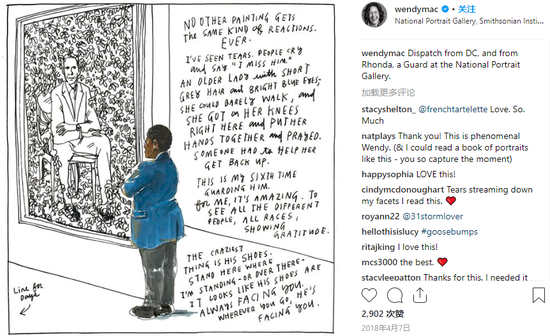 NO OTHER PAINTING GETS
THE SAME KIND OF REACTIONS.
EVER.
I'VE SEEN TEARS. PEOPLE CRY
and SAY "I MISS HIM."
AN OLDER LADY with SHORT
GREY HAIR and BRIGHT BLUE EYES;
SHE COULD BARELY WALK, and
SHE GOT on HER KNEES
RIGHT HERE and PUT HER
HANDS TOGETHER and PRAYED.
SOMEONE HAD to HELP HER
GET BACK UP.
THIS IS MY SIXTH TIME
GUARDING HIM.
for ME, IT'S AMAZING. TO
SEE ALL THE DIFFERENT
PEOPLE, ALL RACES,
SHOWING
GRATITUDE.
THE CRAZIEST
THING IS HIS SHOES.
STAND HERE WHERE
I'M STANDING-OR OVER THERE-
IT LOOKS LIKE HIS SHOES ARE
ALWAYS FACING YOU.
WHEREVER YOU GO, HE'S
FACING YOU.
Line for
Days
wendymac • 关注
National Portrait Gallery, Smithsonian Insti...
wendymac Dispatch from DC, and from
Rhonda, a Guard at the National Portrait
Gallery.
加载更多评论
stacyshelton_ @frenchtartelette Love. So.
Much
natplays Thank you! This is phenomenal
Wendy. (& I could read a book of portraits
like this - you so capture the moment)
happysophia LOVE this!
cindymcdonoughart Tears streaming down
my facets I read this. ❤
royann22 @31stormlover
hellothisislucy #goosebumps
ritajking I love this!
mcs3000 the best. ❤
stacyleepatton Thanks for this. I needed it
2,902 次赞
2018年4月7日